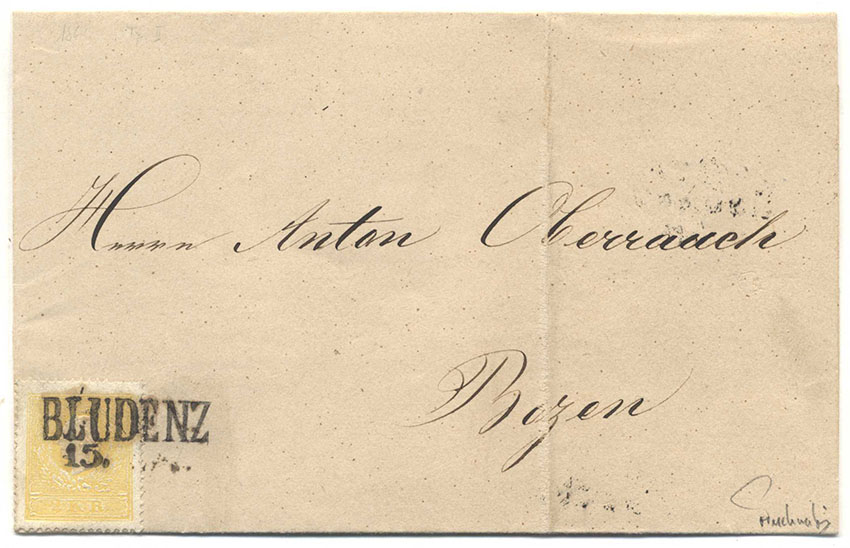 Herrn Anton Oberrauch
Bozen
BLUDENZ
15.
2 KR